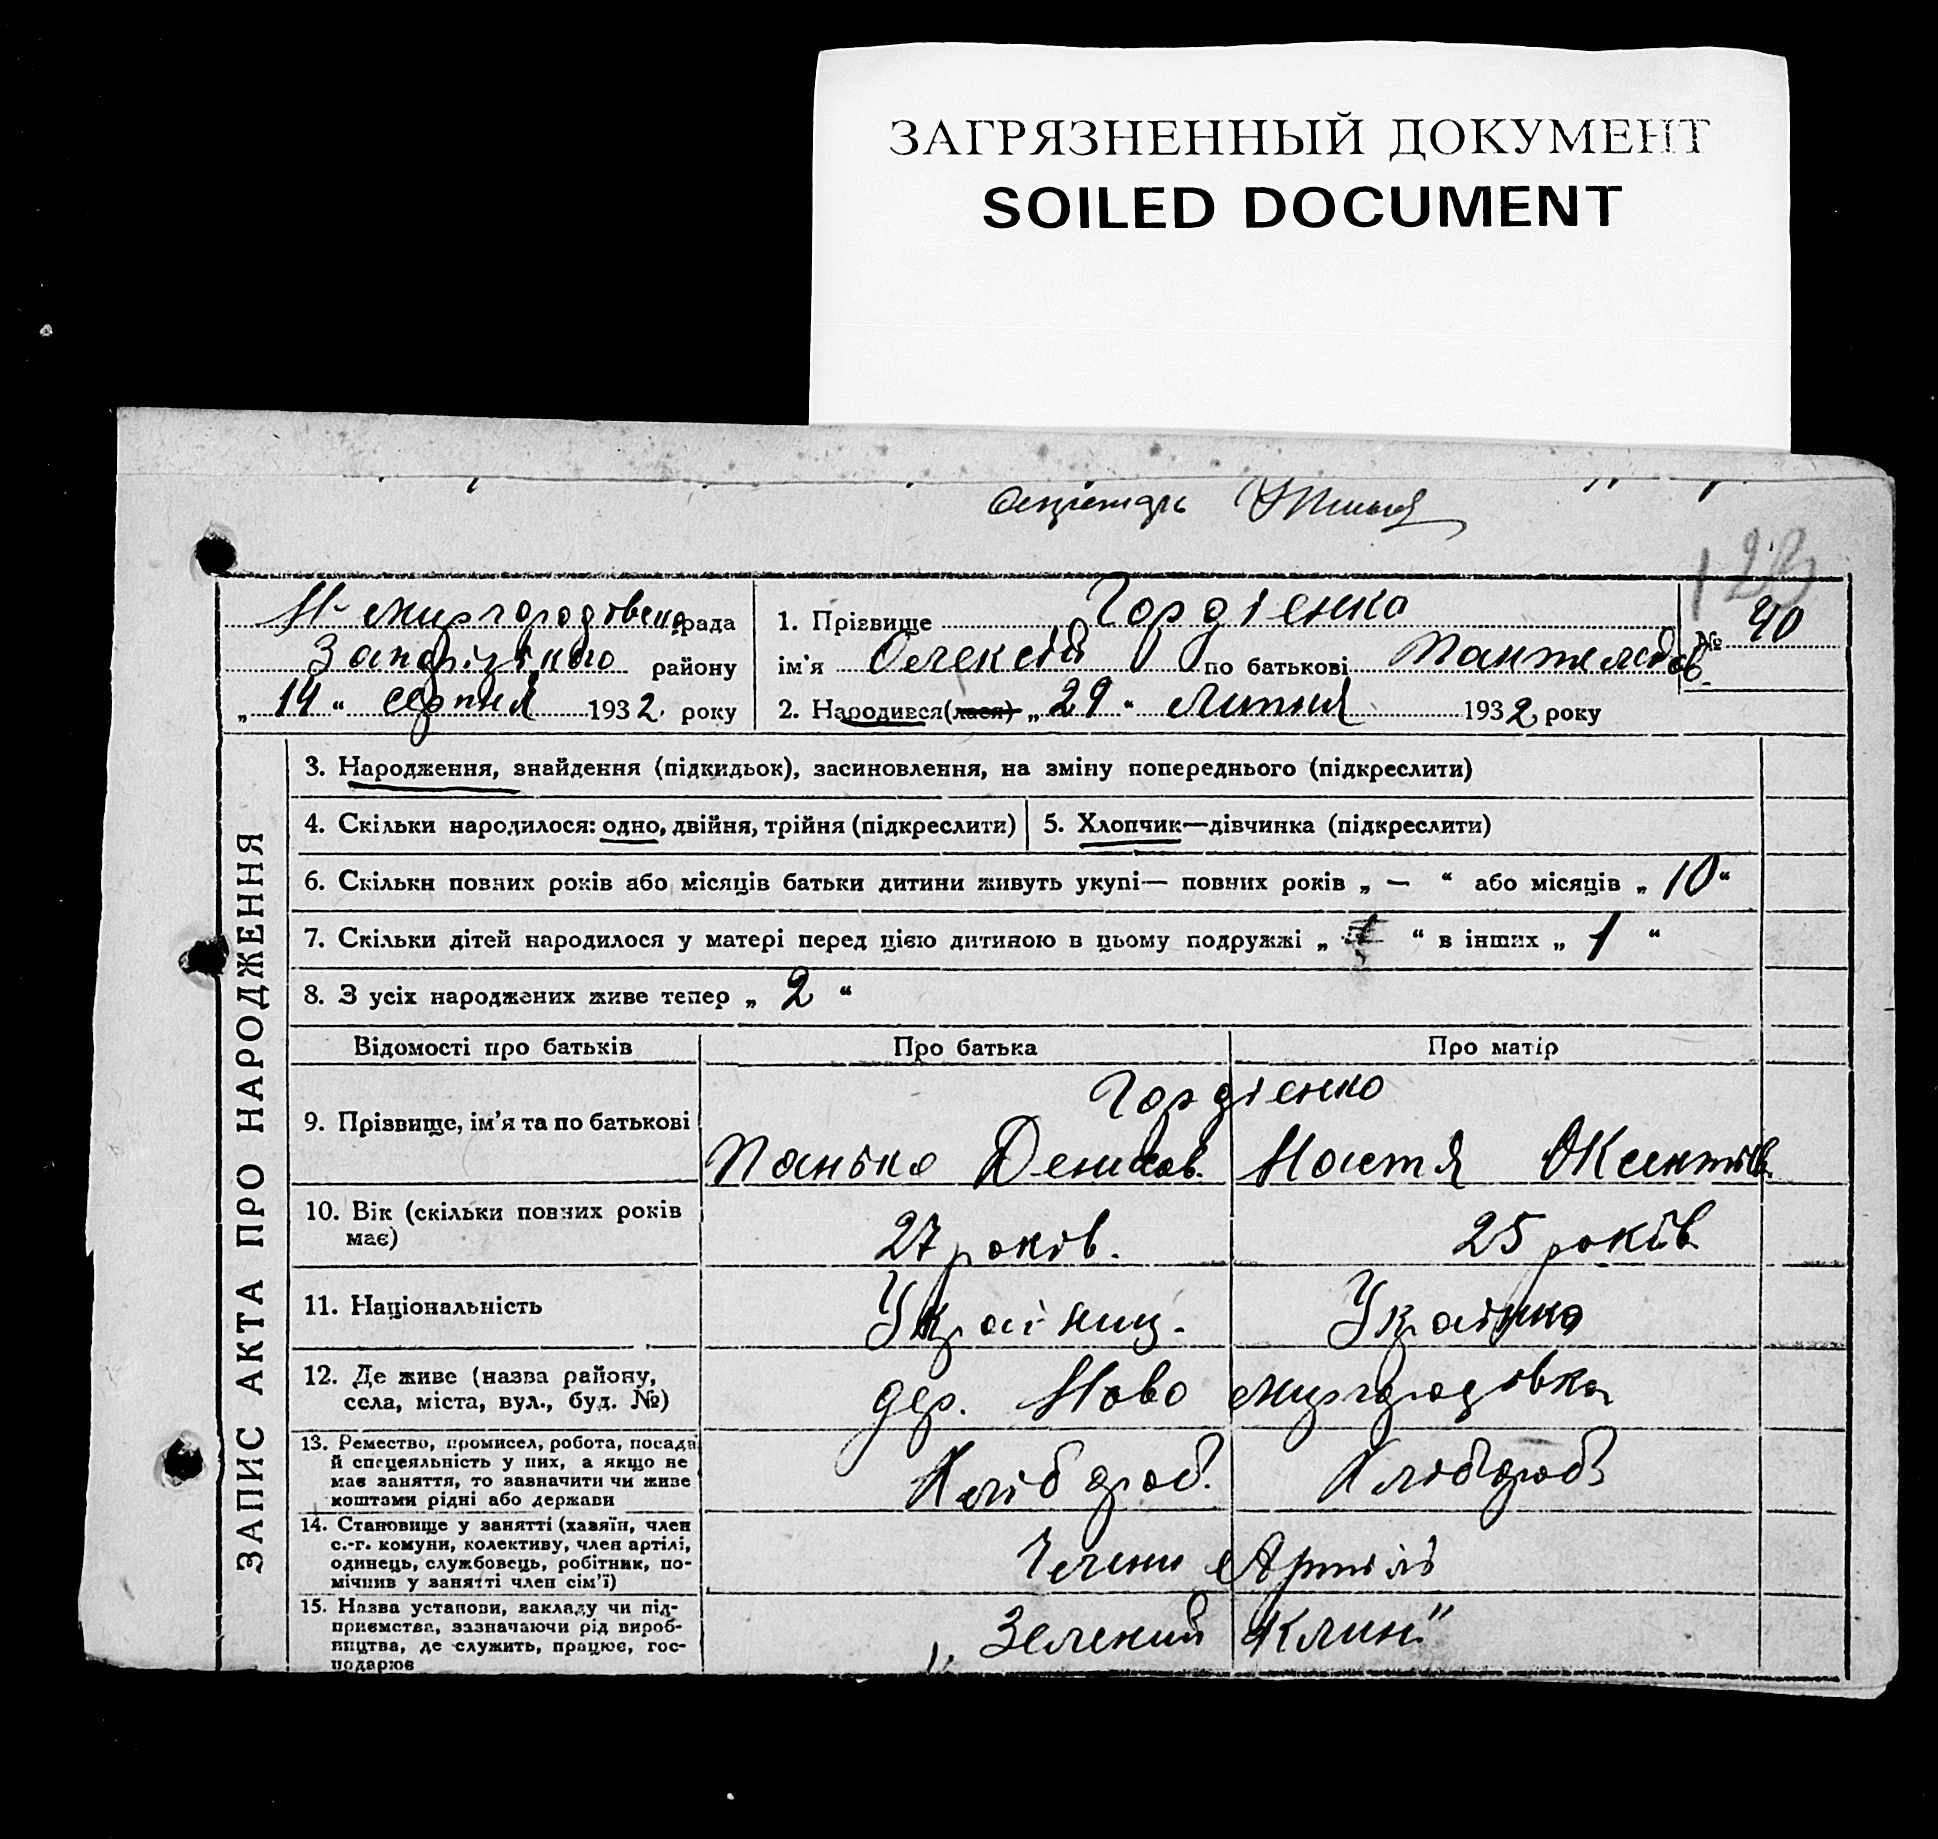 ЗАГРЯЗНЕННЫЙ ДОКУМЕНТ
SOILED DOCUMENT
Секретарь
123
Н-миргородівська рада
району
„ 14 “ серпня 1932 року
1. Прізвище Гордієнко
ім'я Олексій по батькові Пантелиєв.
№ 40
2. Народився(лася) „ 29 “ Липня 1932 року
ЗАПИС АКТА ПРО НАРОДЖЕННЯ
3. Народження, знайдення (підкидьок), засиновлення, на зміну попереднього (підкреслити)
4. Скільки народилося: одно, двійня, трійня (підкреслити)
5. Хлопчик—дівчинка (підкреслити)
6. Скільки повних років або місяців батьки дитини живуть укупі— повних років „ — “ або місяців „ 10 “
7. Скільки дітей народилося у матері перед цією дитиною в цьому подружжі „ “ в інших „ 1 “
8. З усіх народжених живе тепер „ 2 “
Відомості про батьків Про батька Про матір
9. Прізвище, ім'я та по батькові
Гордієнко
Панько Денисов. Настя Оксентіів.
10. Вік (скільки повних років
має)
27 років. 25 років
11. Національність
Украіниц. Украінка
12. Де живе (назва району,
села, міста, вул., буд. №)
дер. Ново миргородовка
13. Ремество, промисел, робота, посада
й спецеяльність у них, а якщо не
має заняття, то зазначити чи живе
коштами рідні або держави
Хлібороб. Хлібороб
14. Становище у занятті (хазяїн, член
с.-г. комуни, колективу, член артілі,
одинець, службовець, робітник, по-
мічнив у занятті член сім'ї)
Члени Артілі
15. Назва установи, закладу чи під-
приємства, зазначаючи рід вироб-
ництва, де служить, працює, гос-
подарює
„Зелений Клин“